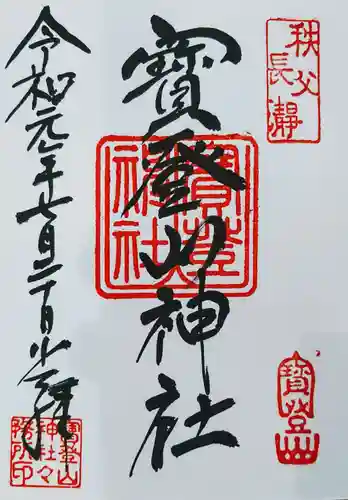 秩父
長瀞
寳登山神社
寳登
神社
寳登山
令和元年七月二十日 参拝
寳登山
神社々
務所印